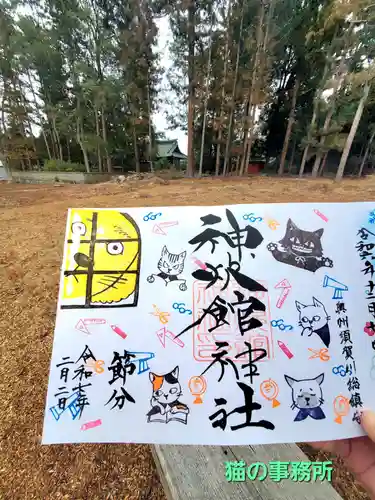 奥州須賀川総鎮
神炊館神社
節分
令和七年
二月二日
猫の事務所